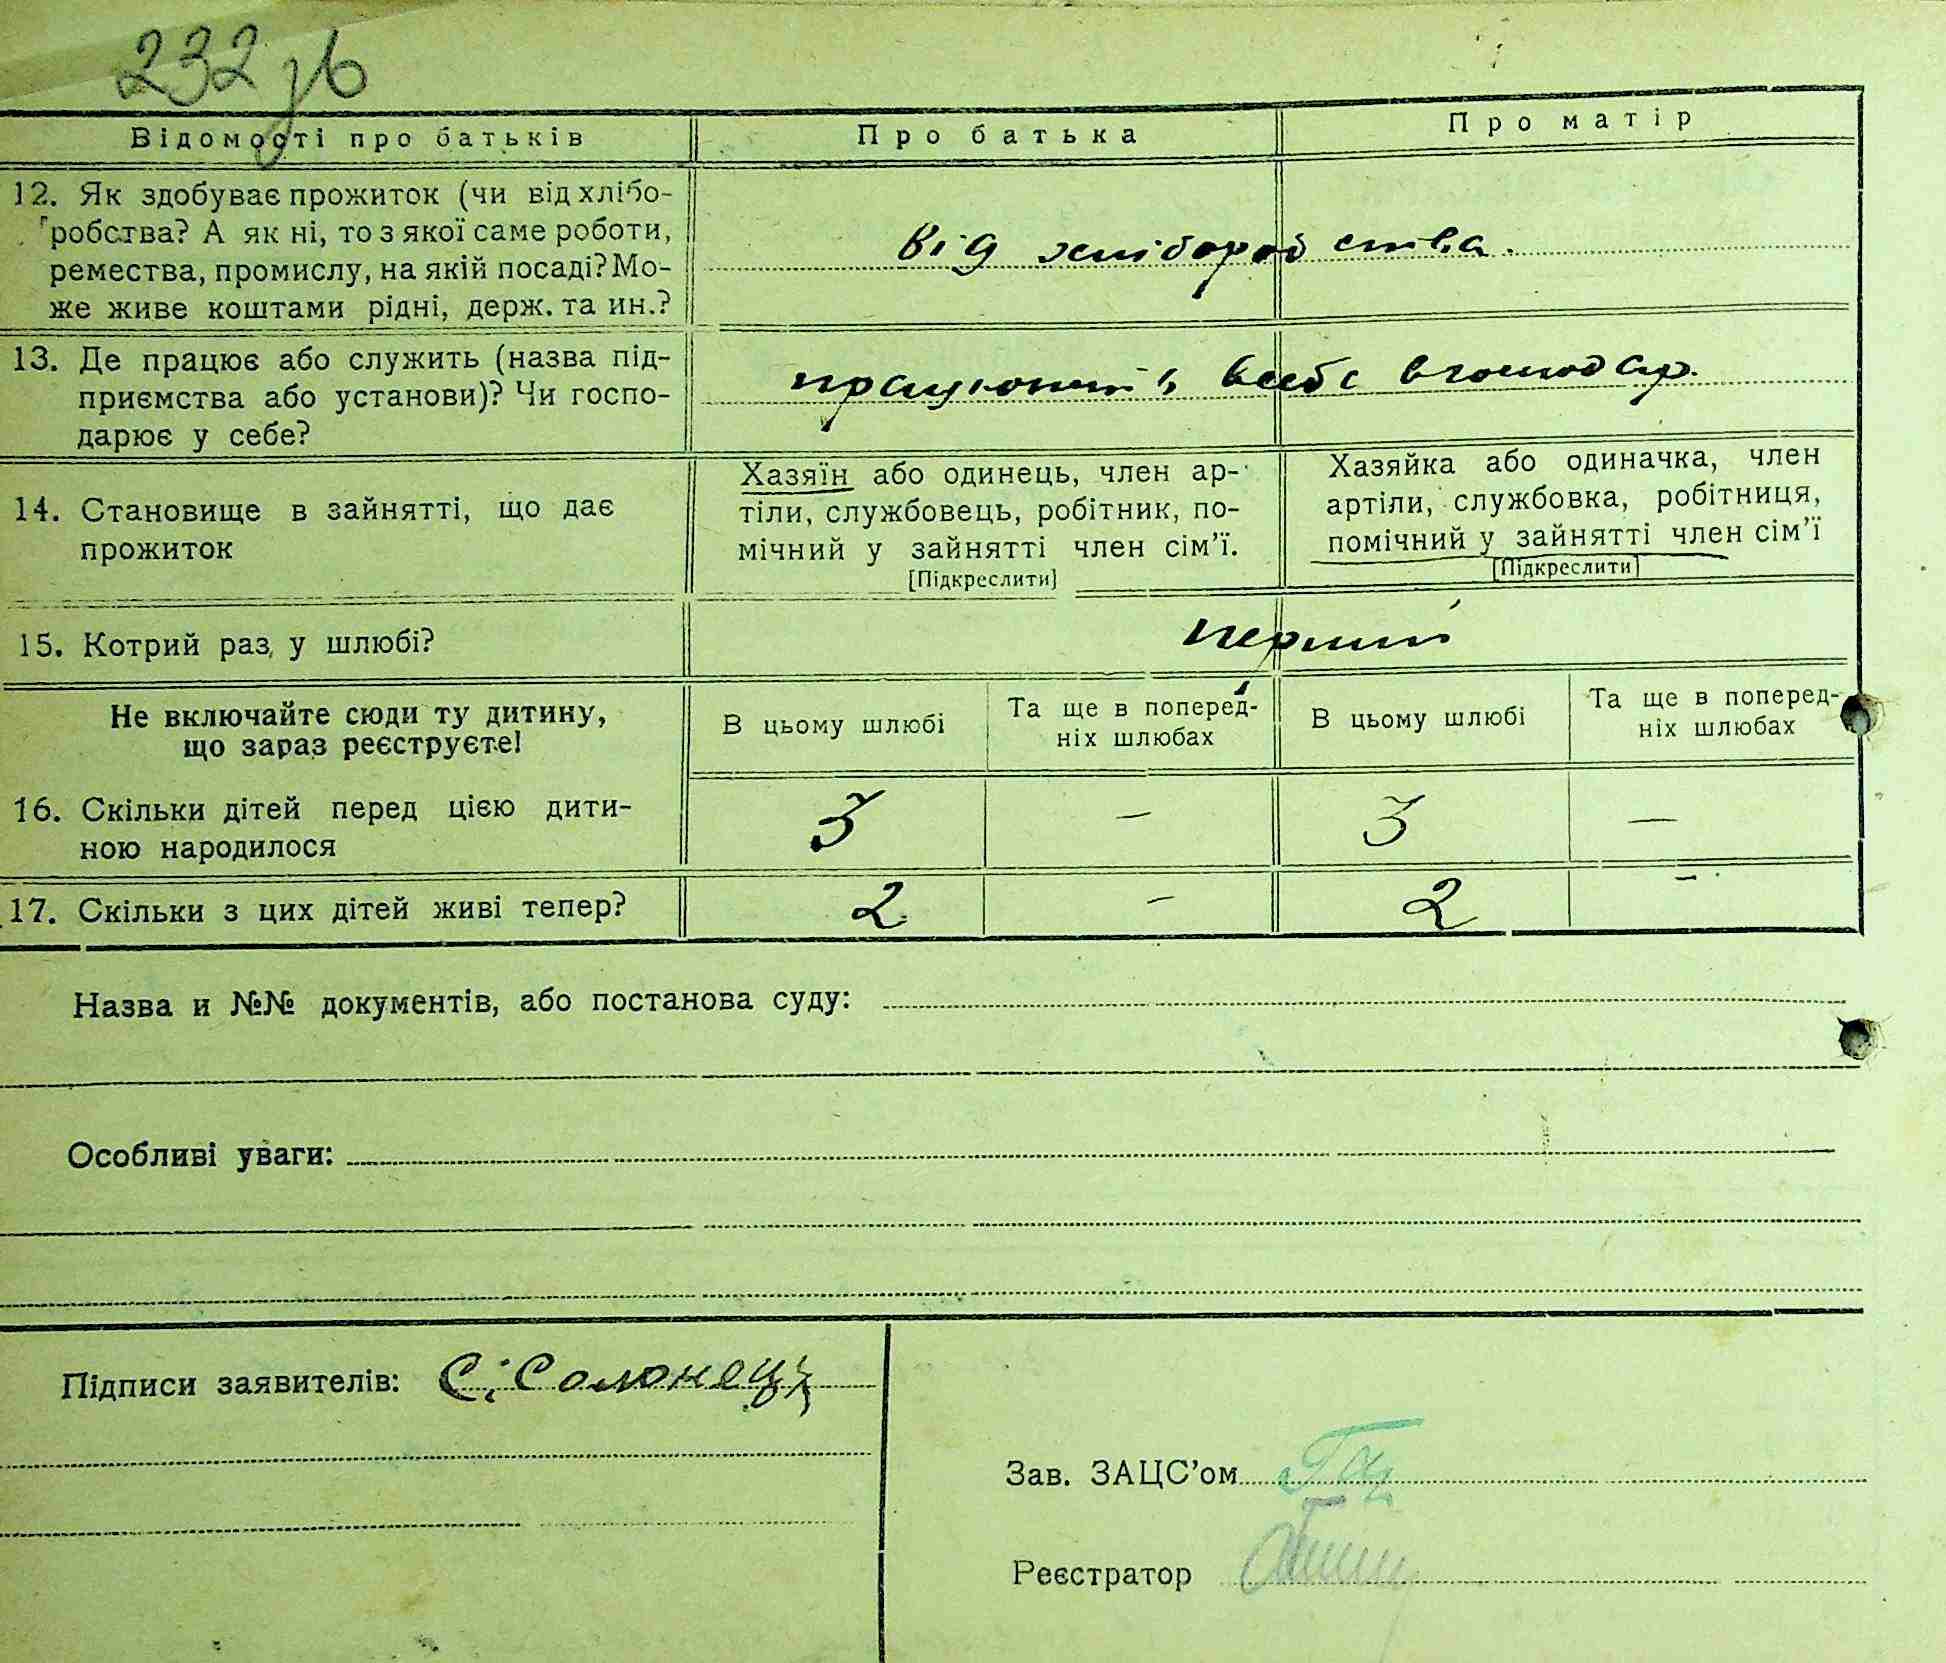 232 зв
Відомості про батьків
Про батька
Про матір
12. Як здобуває прожиток (чи від хлібо-
робства? А як ні, то з якої саме роботи,
ремества, промислу, на якій посаді? Мо-
же живе коштами рідні, держ. та ин.?
від хліборобства.
13. Де працює або служить (назва під-
приємства або установи)? Чи госпо-
дарює у себе?
14. Становище в зайнятті, що дає
прожиток
Хазяїн або одинець, член ар-
тіли, службовець, робітник, по-
мічний у зайнятті член сім’ї.
[Підкреслити]
Хазяйка або одиначка, член
артіли, службовка, робітниця,
помічний у зайнятті член сім’ї
[Підкреслити]
15. Котрий раз у шлюбі?
перший
Не включайте сюди ту дитину,
що зараз реєструєте!
В цьому шлюбі
Та ще в поперед-
ніх шлюбах
В цьому шлюбі
Та ще в поперед-
ніх шлюбах
16. Скільки дітей перед цією дити-
ною народилося
3 – 3 –
17. Скільки з цих дітей живі тепер?
2 – 2 –
Назва и №№ документів, або постанова суду:
Особливі уваги:
Підписи заявителів: С. Солонець
Зав. ЗАЦС’ом
Реєстратор